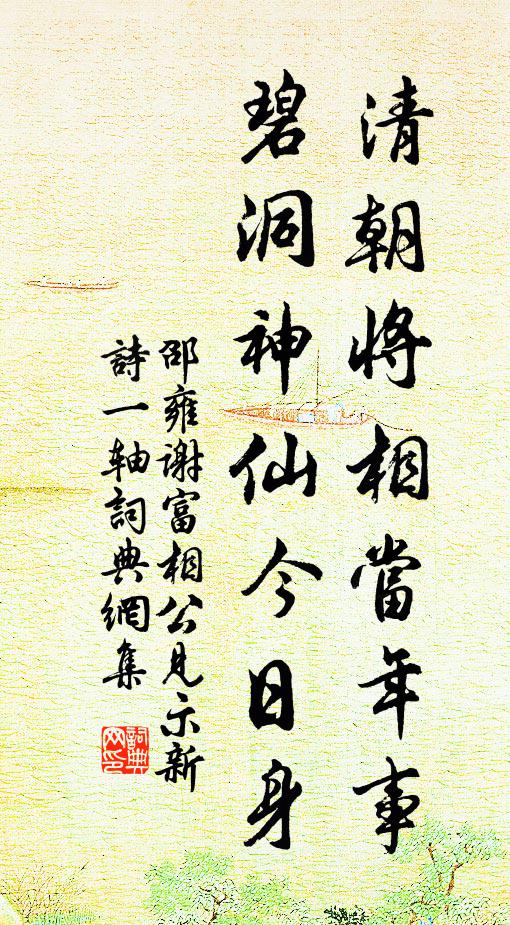 清朝將相當年事
碧洞神仙今日身
邵雍謝富相公見示新
詩一轴詞典網集
詞典
网印